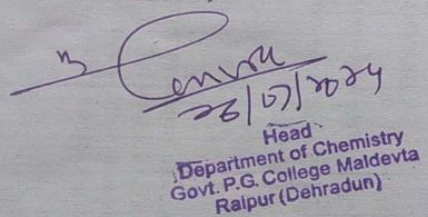 26/07/2024
Head
Department of Chemistry
Govt. P.G. College Maldevta
Raipur (Dehradun)